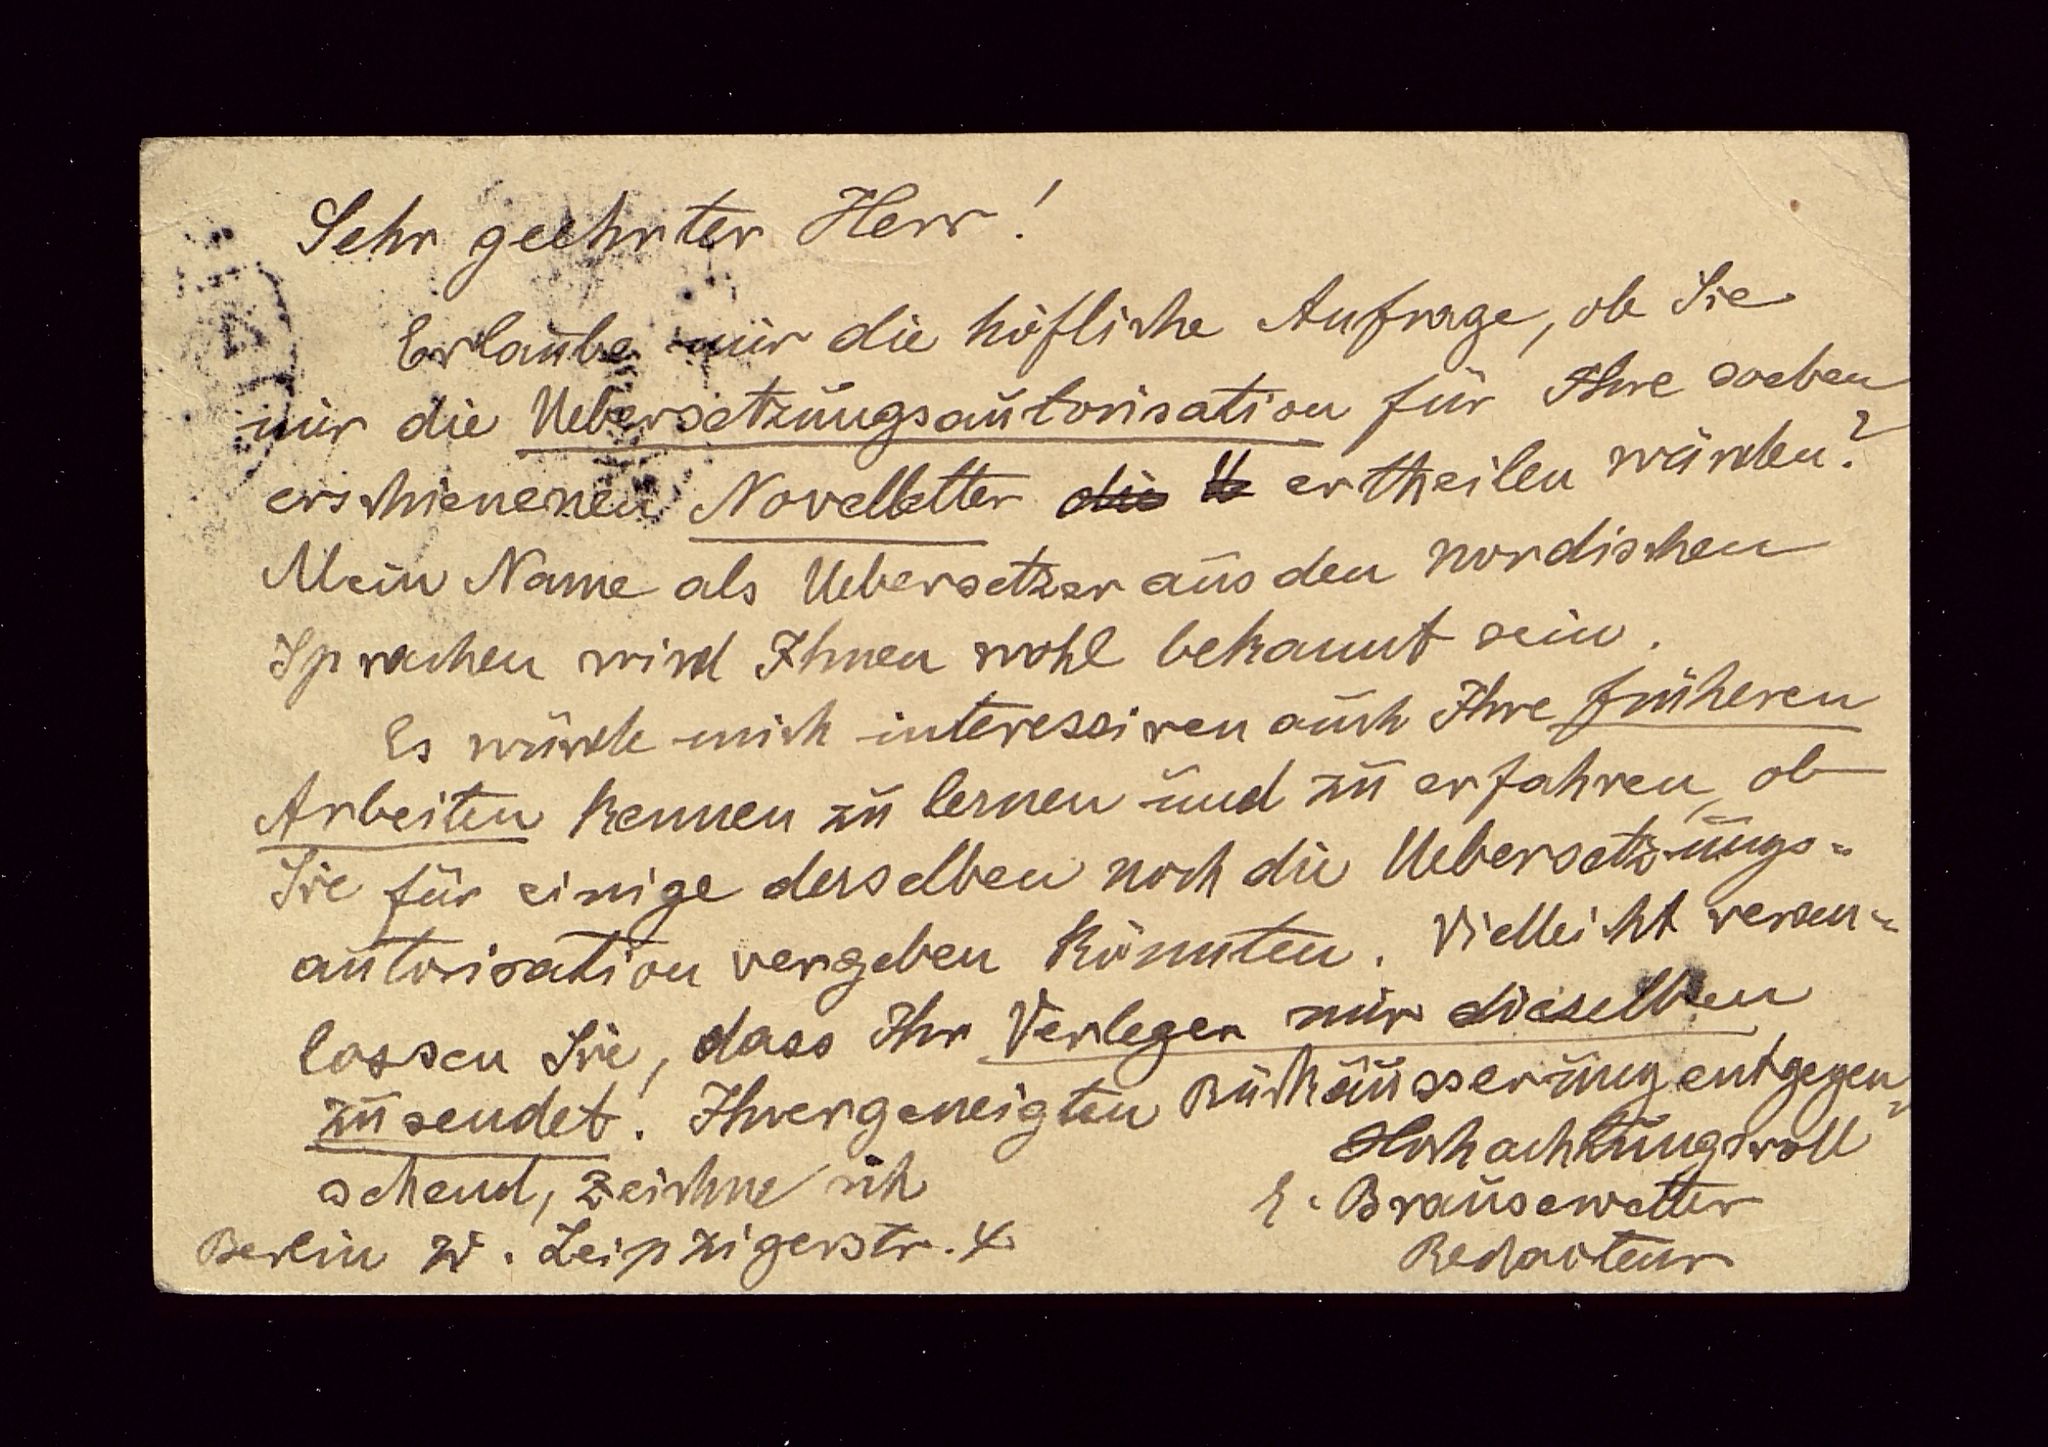 Sehr geehrter Herr!
Erlaube mir die höfliche Anfrage, ob Sie
mir die Uebersetzungsautorisation für Ihre soeben
erschienenen Novelletter die U ertheilen würden?
Mein Name als Uebersetzer aus den nordischen
Sprachen wird Ihnen wohl bekannt sein.
Es würde mich interessiren auch Ihre früheren
Arbeiten kennen zu lernen und zu erfahren, ob
Sie für einige derselben noch die Uebersetzungs-
autorisation vergeben könnten. Vielleicht veran-
lassen Sie, dass Ihr Verleger mir dieselben
zusendet. Ihrer geneigten Rückäusserung entgegen-
sehend, zeichne ich
Hochachtungsvoll
E. Brausewetter
Redacteur
Berlin W. Leipzigerstr. 4